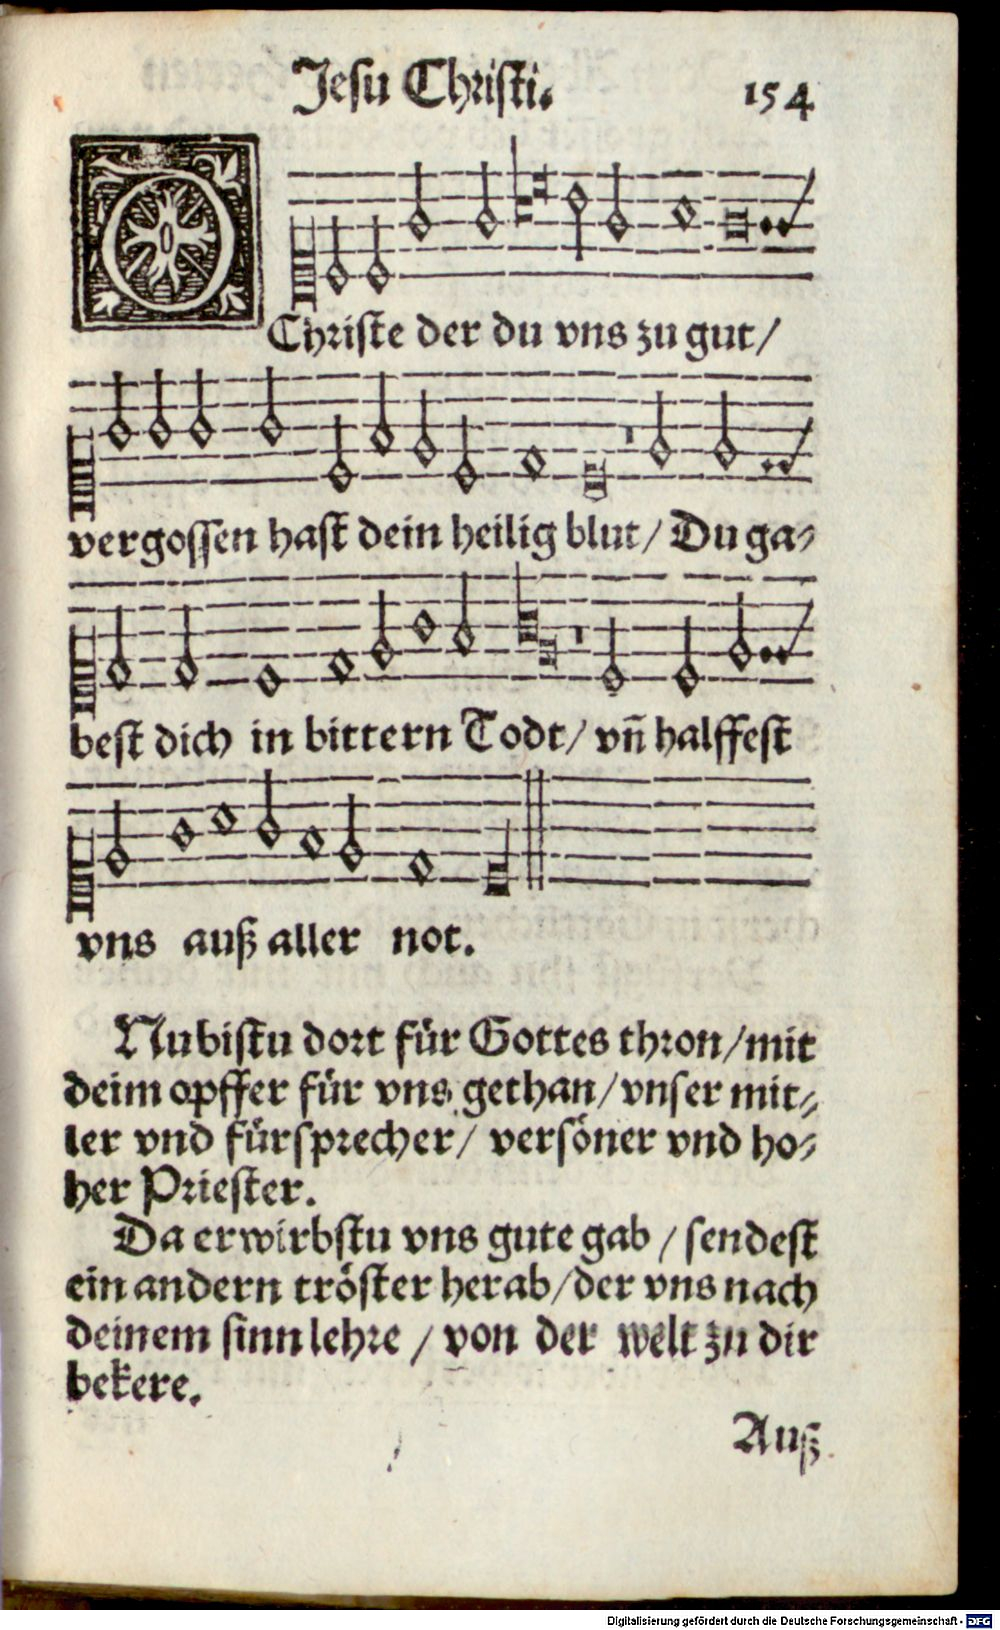 Jesu Christi. 154
O Christe der du vns zu gut/
vergossen hast dein heilig blut/ Du ga-
best dich in bittern Todt/ vn̄ halffest
vns auß aller not.
Nu bistu dort für Gottes thron/mit
deim opffer für vns gethan/vnser mit-
ler vnd fürsprecher/ versöner vnd ho-
her Priester.
Da erwirbstu vns gute gab / sendest
ein andern tröster herab/der vns nach
deinem sinn lehre / von der welt zu dir
bekere.
Auß
Digitalisierung gefördert durch die Deutsche Forschungsgemeinschaft - DFG